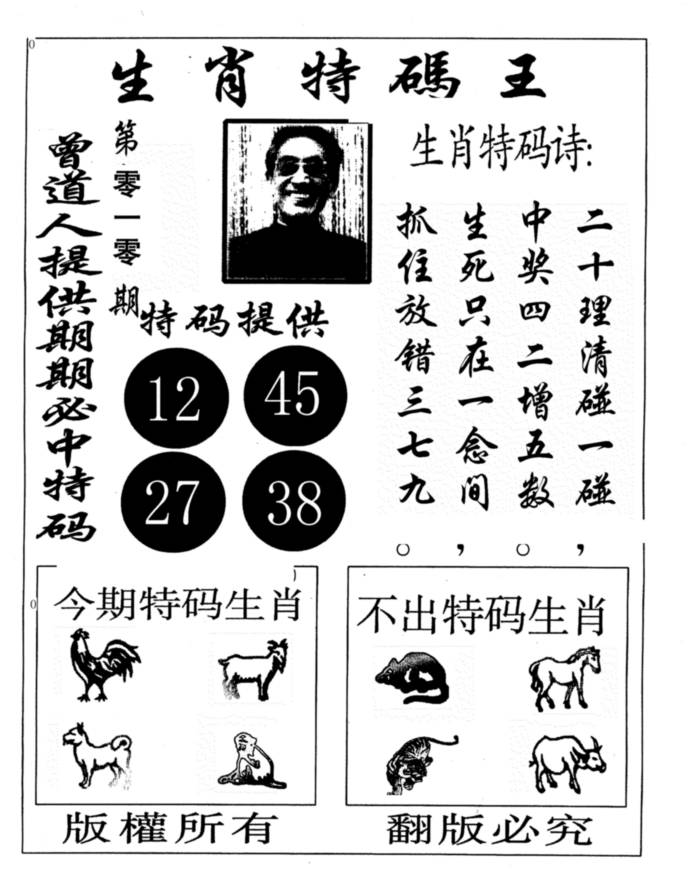 生肖特碼王
曾道人提供期期必中特码
第零一零期
特码提供
12
45
27
38
生肖特码诗:
二十理清碰一碰,
中奖四二增五数。
生死只在一念间,
抓住放错三七九。
今期特码生肖
不出特码生肖
版權所有
翻版必究